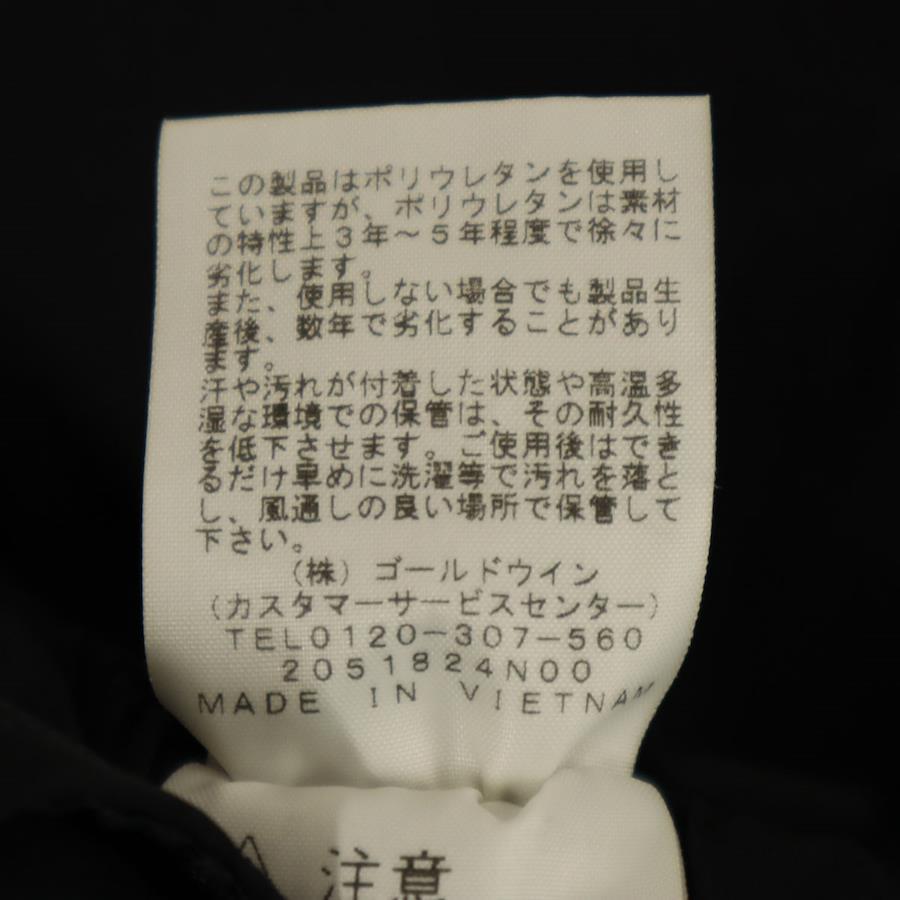 この製品はポリウレタンを使用し
ていますが、ポリウレタンは素材
の特性上3年〜5年程度で徐々に
劣化します。
また、使用しない場合でも製品生
産後、数年で劣化することがあり
ます。
汗や汚れが付着した状態や高温多
湿な環境での保管は、その耐久性
を低下させます。ご使用後はでき
るだけ早めに洗濯等で汚れを落と
し、風通しの良い場所で保管して
下さい。
(株)ゴールドウイン
(カスタマーサービスセンター)
TEL0120-307-560
2051824N00
MADE IN VIETNAM
注意